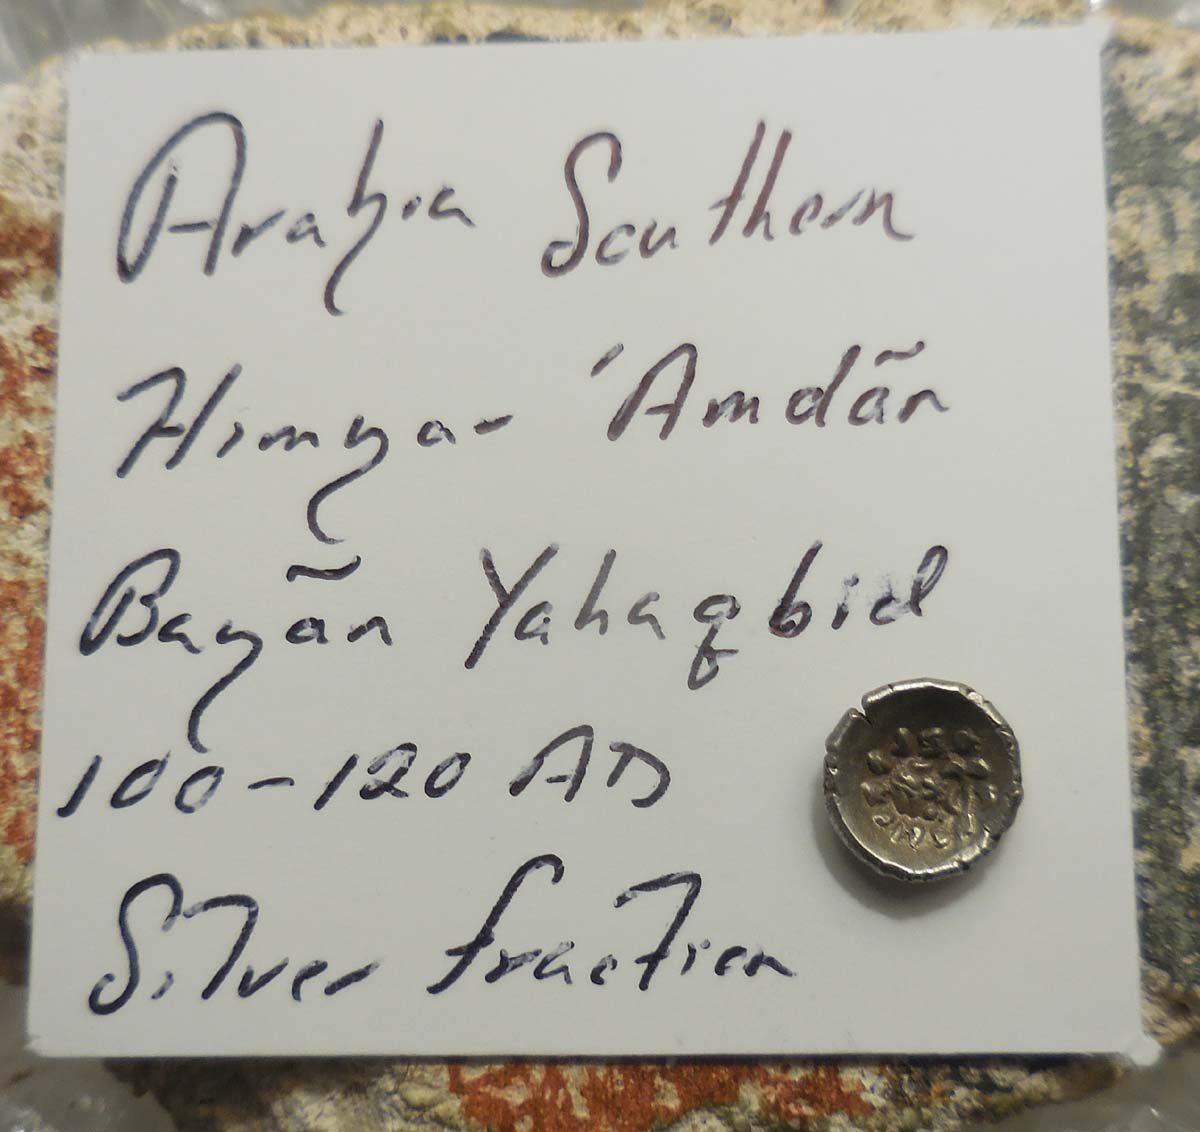 Arabia Southern
Himyar 'Amdãn
Bayãn Yahaqbid
100-120 AD
Silver fraction